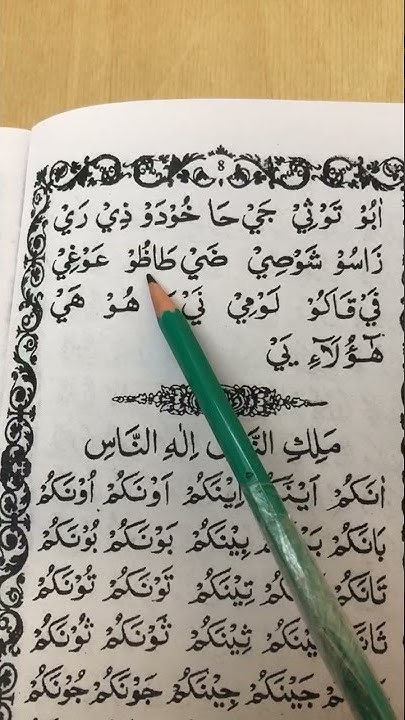 8
اٰبُوْ تَوْثِيْ جَيْ حَا خُوْدَوْ ذِيْ رَيْ
زَاسُوْ شَوْصِيْ ضَيْ طَاظُوْ عَوْغِيْ
فَيْ قَاكُوْ لَوْمِيْ نَيْ هُوْ هَيْ
هٰٓؤُلَآءِ يَيْ
مَلِكِ النَّاسِ اِلٰهِ النَّاسِ
اٰنَكُمْ اَيْنَكُمْ اِيْنَكُمْ اَوْنَكُمْ اُوْنَكُمْ
بَانَكُمْ بِيْنَكُمْ بَوْنَكُمْ بُوْنَكُمْ
تَانَكُمْ تِيْنَكُمْ تَوْنَكُمْ تُوْنَكُمْ
ثِيْنَكُمْ ثَوْنَكُمْ ثُوْنَكُمْ
جَيْنَكُمْ جِيْنَكُمْ جَوْنَكُمْ جُوْنَكُمْ